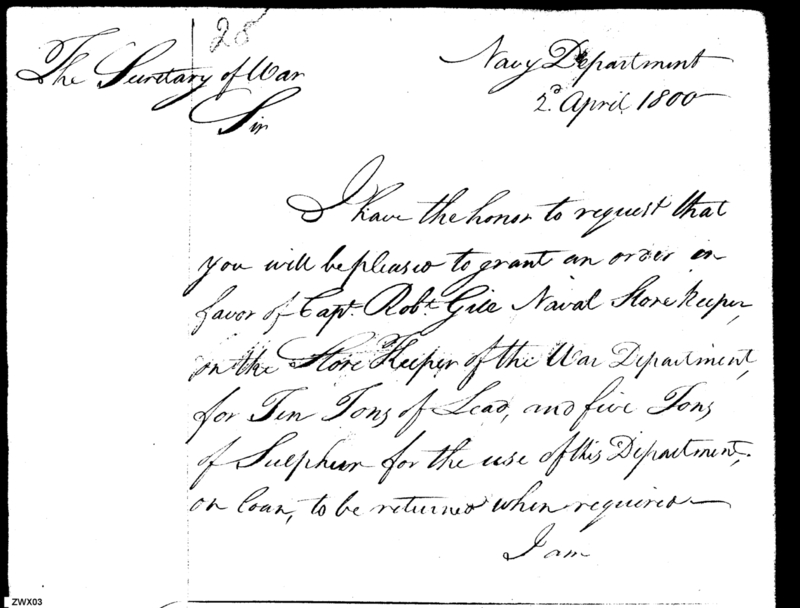 28
The Secretary of War
Navy Department
2d April 1800
Sir
I have the honor to request that
you will be pleased to grant an order in
favor of Capt. Robt. Gill Naval Store keeper,
on the Store Keeper of the War Department,
for Ten Tons of Lead, and five Tons
of Sulphur for the use of this Department,
on loan, to be returned when required—
I am
ZWX03